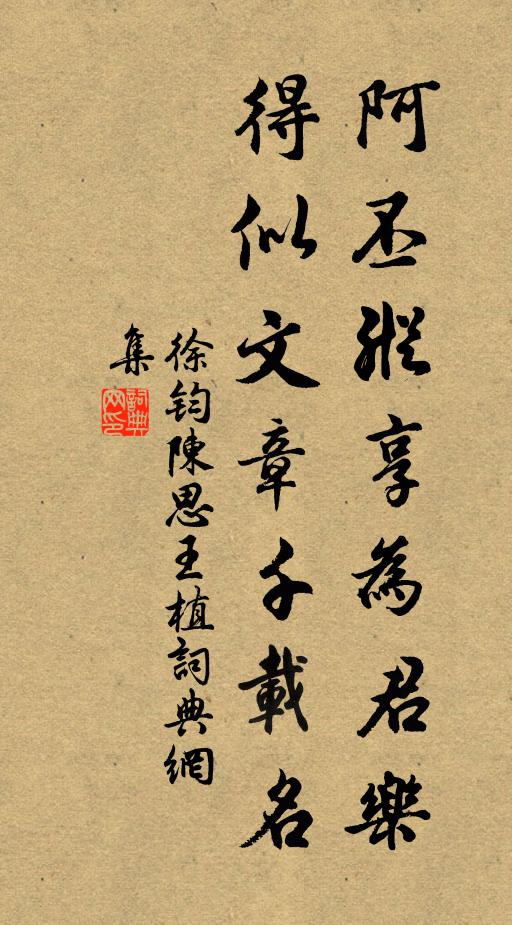 阿丕縱享為君樂
得似文章千載名
徐鈞陳思王植詞典網
集
詞典
网印